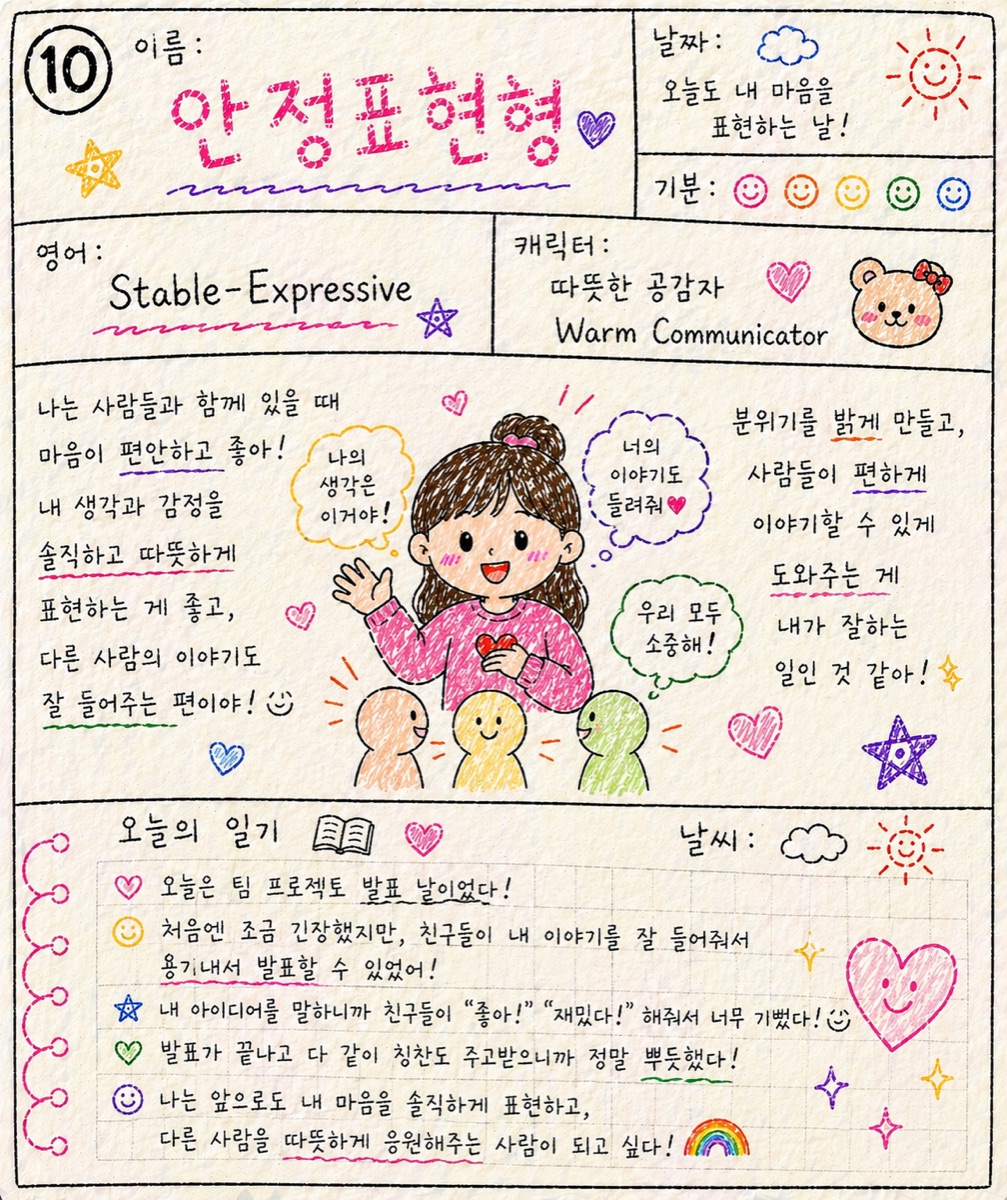 10
이름:
안정표현형
날짜:
오늘도 내 마음을
표현하는 날!
기분:
영어:
Stable-Expressive
캐릭터:
따뜻한 공감자
Warm Communicator
나는 사람들과 함께 있을 때
마음이 편안하고 좋아!
내 생각과 감정을
솔직하고 따뜻하게
표현하는 게 좋고,
다른 사람의 이야기도
잘 들어주는 편이야!
나의
생각은
이거야!
너의
이야기도
들려줘
우리 모두
소중해!
분위기를 밝게 만들고,
사람들이 편하게
이야기할 수 있게
도와주는 게
내가 잘하는
일인 것 같아!
오늘의 일기
날씨:
오늘은 팀 프로젝트 발표 날이었다!
처음엔 조금 긴장했지만, 친구들이 내 이야기를 잘 들어줘서
용기내서 발표할 수 있었어!
내 아이디어를 말하니까 친구들이 “좋아!” “재밌다!” 해줘서 너무 기뻤다!
발표가 끝나고 다 같이 칭찬도 주고받으니까 정말 뿌듯했다!
나는 앞으로도 내 마음을 솔직하게 표현하고,
다른 사람을 따뜻하게 응원해주는 사람이 되고 싶다!